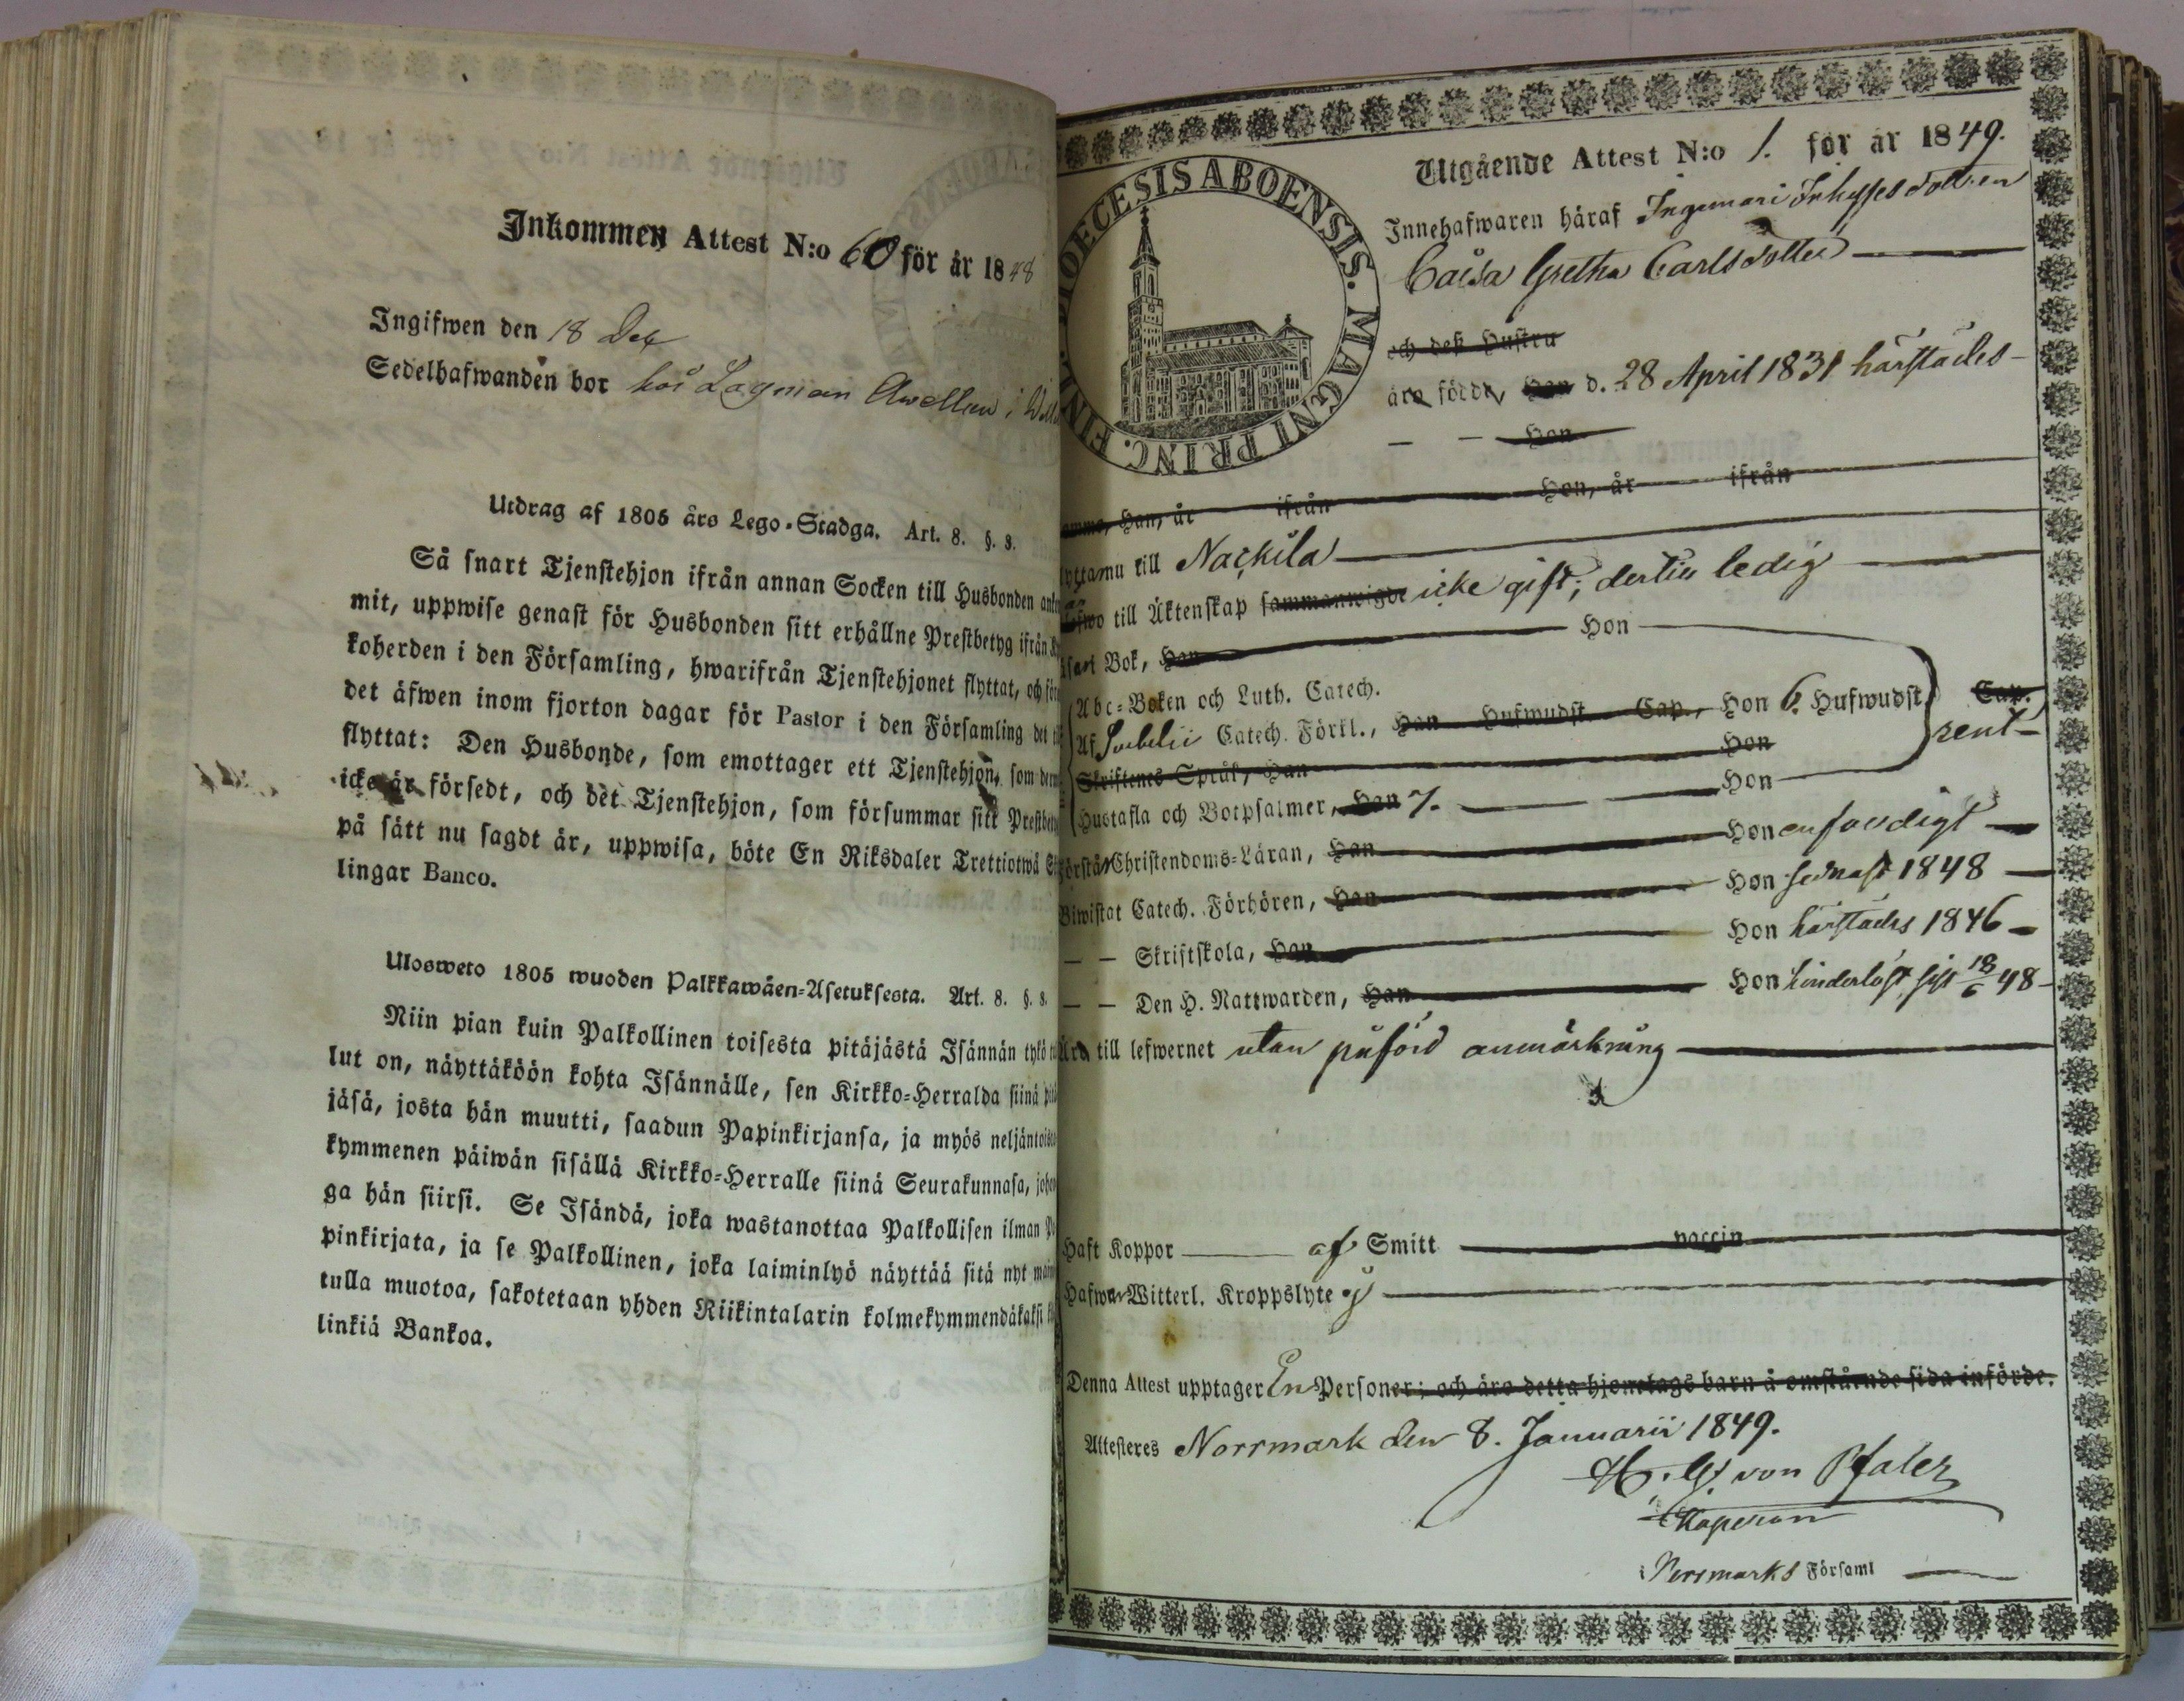 Inkommen Attest N:o 60 för år 1848
Ingifwen den 18 Dec
Sedelhafwanden bor hos Lagman Awellan i
Utdrag af 1805 års Lego-Stadga. Art. 8. §. 8.
Så snart Tjenstehjon ifrån annan Socken till Husbonden
mit, uppwise genast för Husbonden sitt erhållne Prestbetyg ifrån
koherden i den Församling, hwarifrån Tjenstehjonet flyttat, och
det äfwen inom fjorton dagar för Pastor i den Församling det
flyttat: Den Husbonde, som emottager ett Tjenstehjon, som
icke är försedt, och det Tjenstehjon, som försummar sitt
på sätt nu sagdt är, uppwisa, böte En Riksdaler Trettiotwå
lingar Banco.
Ulosweto 1805 wuoden Palkkawäen-Asetuksesta. Art. 8. §. 8.
Niin pian kuin Palkollinen toisesta pitäjästä Isännän tykö
lut on, näyttäköön kohta Isännälle, sen Kirkko-Herralda siinä
jäsä, josta hän muutti, saadun Papinkirjansa, ja myös
kymmenen päiwän sisällä Kirkko-Herralle siinä Seurakunnasa,
ga hän siirsi. Se Isändä, joka wastanottaa Palkollisen ilman
pinkirjata, ja se Palkollinen, joka laiminlyö näyttää sitä nyt
tulla muotoa, sakotetaan yhden Riikintalarin kolmekymmendäkaksi
linkiä Bankoa.
DIOECESIS ABOENSIS. MAGNI PRINC. FINL.
Utgående Attest N:o 1. för år 1849.
Innehafwaren häraf Ingemari
Caisa Gretha Carlsdotter
och deß Hustru
äro födde, Han d. 28 April 1831 härstädes
— — Hon
Han, år ifrån Hon, år ifrån
nu till Nackila
till Äktenskap icke gift, dertill ledig
Bok, Han Hon
Abc-Boken och Luth. Catech.
Af Catech. Förkl., Han Hufwudst. Cap., Hon 6. Hufwudst. Cap.
rent
Skriftenes Språk, Han Hon
Hustafla och Botpsalmer, Han 7. Hon
Christendoms-Läran, Han Hon enfaldigt
Biwistat Catech. Förhören, Han Hon sednast 1848
— — Skriftskola, Han Hon härstädes 1846
— — Den H. Nattwarden, Han Hon hinderlöst, sist 18/6 48
till lefwernet utan påförd anmärkning
Haft Koppor af Smitt vaccin
Witterl. Kroppslyte ej
Denna Attest upptager En Personer; och äro detta hjonelags barn å omstående sida införde.
Attesteres Norrmark den 8. Januarii 1849.
von Pfaler
Kapellan
i Norrmarks Församl